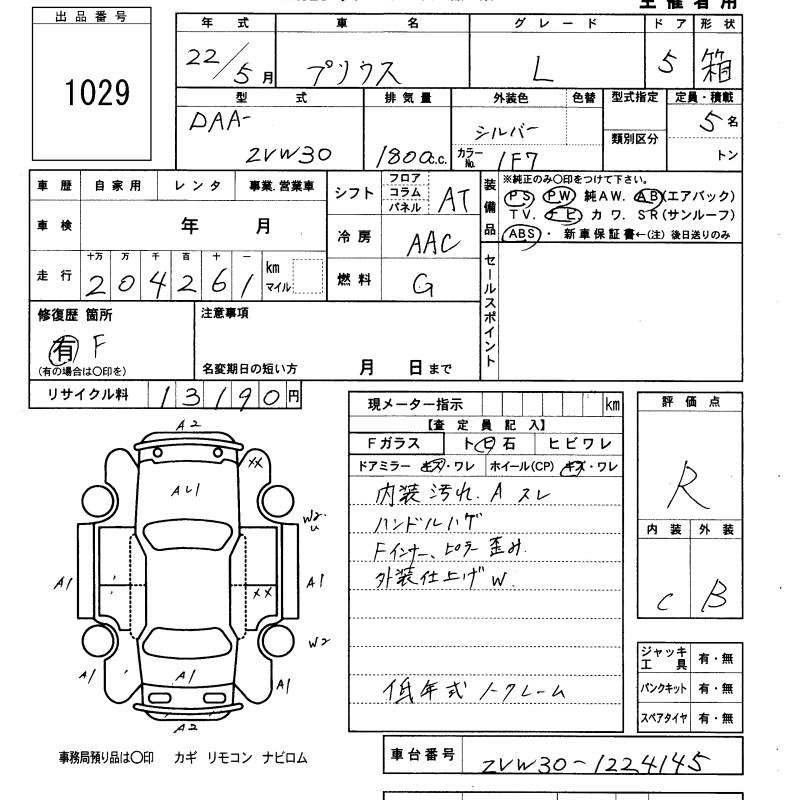 主催者用
出品番号
1029
年式 車名 グレード ドア 形状
22/5月 プリウス L 5 箱
型式 排気量 外装色 色替 型式指定 定員・積載
DAA-
ZVW30 1800c.c. シルバー カラーNo. 1F7 類別区分 5名
トン
車歴 自家用 レンタ 事業.営業車
車検 年 月
走行 十万 万 千 百 十 一
204261 km マイル
シフト フロア コラム パネル AT
冷房 AAC
燃料 G
装備品 ※純正のみ〇印をつけて下さい。
PS PW 純AW. AB(エアバック)
TV. ナビ カワ. SR(サンルーフ)
ABS・ 新車保証書←(注) 後日送りのみ
セールスポイント
修復歴 箇所
有 F
(有の場合は〇印を)
注意事項
名変期日の短い方 月 日まで
リサイクル料 13190円
現メーター指示 km
【査定員記入】
Fガラス ト日石 ヒビワレ
ドアミラー キズ・ワレ ホイール(CP) キズ・ワレ
内装汚れ. A スレ
ハンドルハゲ
Fインナー、ピラー歪み.
外装仕上げ W.
低年式 ノークレーム
評価点
R
内装 外装
C B
ジャッキ工具 有・無
パンクキット 有・無
スペアタイヤ 有・無
A2
XX
AU1
W2
U
A1
A1
XX
W2
A1
A1
A1
A2
事務局預り品は〇印 カギ リモコン ナビロム
車台番号 ZVW30-1224145